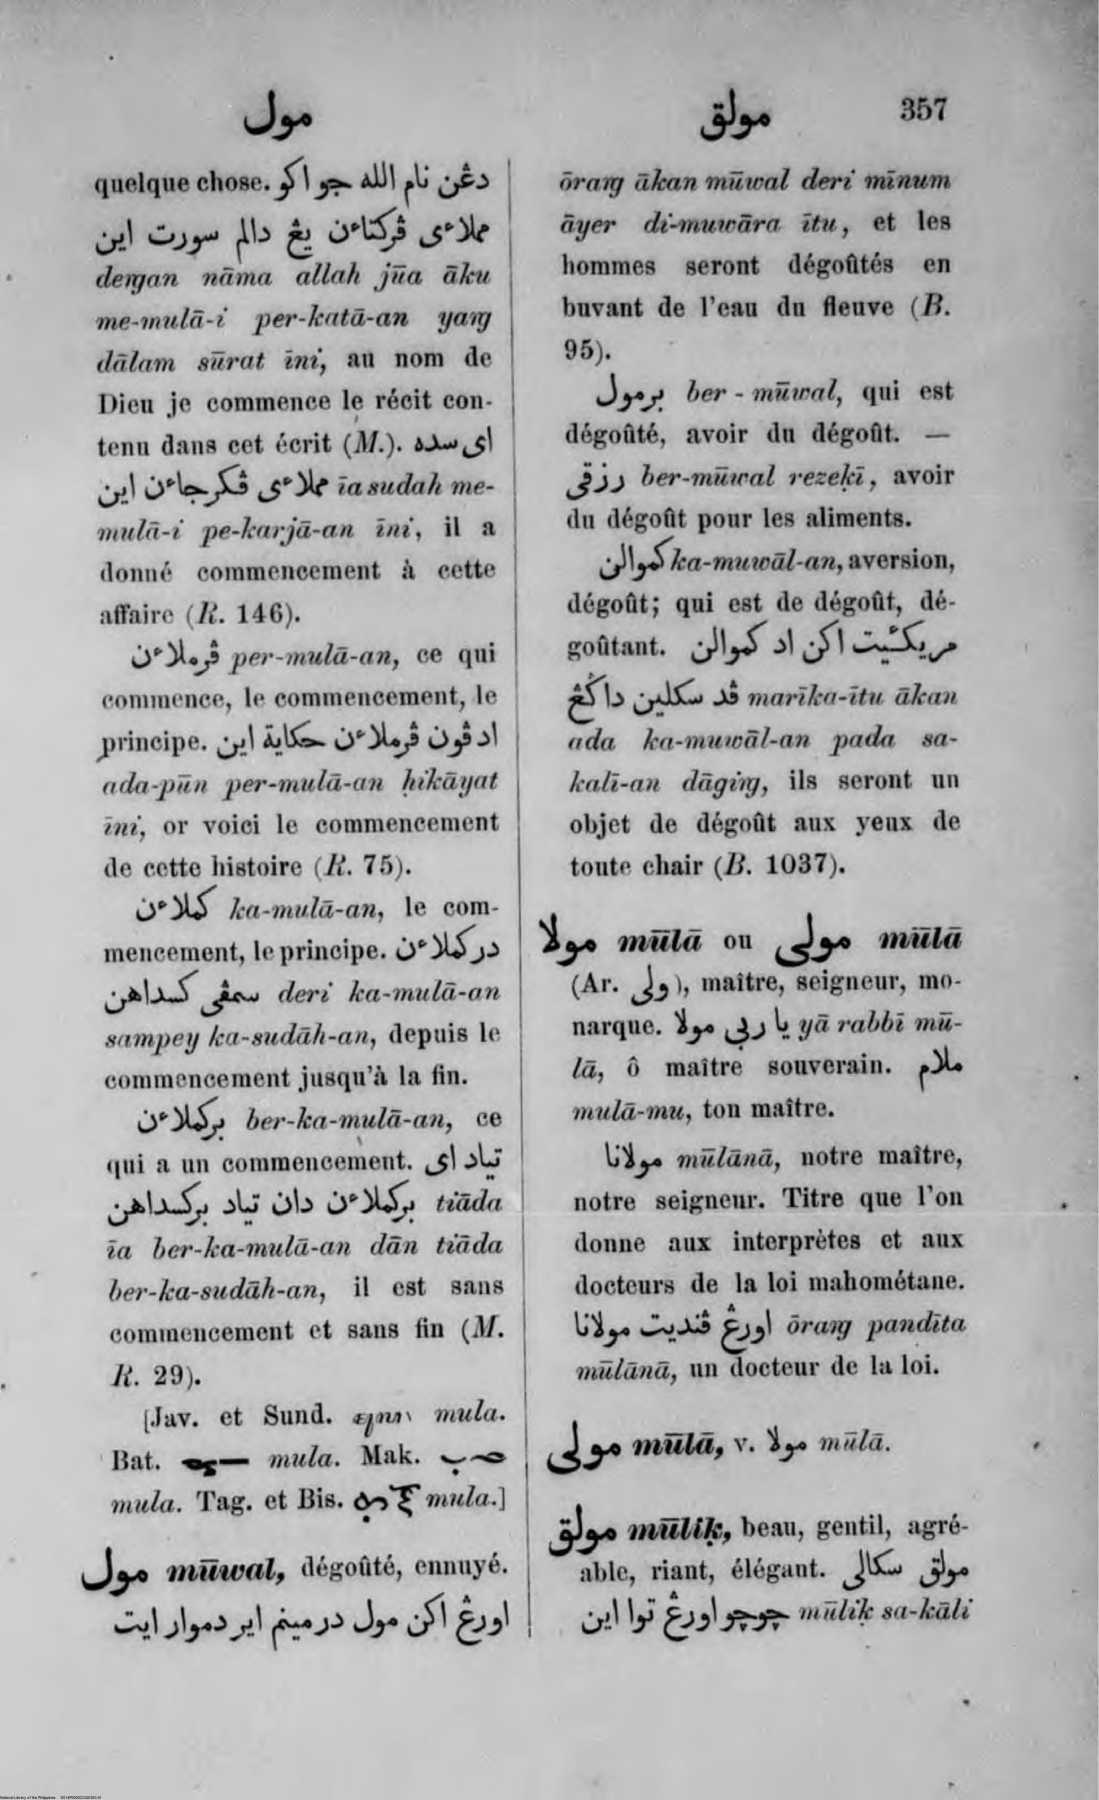 مول
مولق 357
quelque chose. دڠن نام الله جو اکو
مملاءي ڤرکتاءن يڠ دالم سورت اين
deṅgan nāma allah jūa āku
me-mulā-i per-katā-an yaṅg
dālam sūrat īni, au nom de
Dieu je commence le récit con-
tenu dans cet écrit (M.). اي سده
مملاءي ڤکرجاءن اين īa sudah me-
mulā-i pe-karjā-an īni, il a
donné commencement à cette
affaire (R. 146).
ڤرملاءن per-mulā-an, ce qui
commence, le commencement, le
principe. ادڤون ڤرملاءن حکاية اين
ada-pūn per-mulā-an ḥikāyat
īni, or voici le commencement
de cette histoire (R. 75).
کملاءن ka-mulā-an, le com-
mencement, le principe. درکملاءن
سمڤي کسداهن deri ka-mulā-an
sampey ka-sudāh-an, depuis le
commencement jusqu'à la fin.
برکملاءن ber-ka-mulā-an, ce
qui a un commencement. تياد اي
برکملاءن دان تياد برکسداهن tiāda
īa ber-ka-mulā-an dān tiāda
ber-ka-sudāh-an, il est sans
commencement et sans fin (M.
R. 29).
[Jav. et Sund. mula.
Bat. mula. Mak.
mula. Tag. et Bis. mula.]
مول mūwal, dégoûté, ennuyé.
اورڠ اکن مول درمينم اير دموار ايت
ōraṅg ākan mūwal deri mīnum
āyer di-muwāra ītu, et les
hommes seront dégoûtés en
buvant de l'eau du fleuve (B.
95).
برمول ber-mūwal, qui est
dégoûté, avoir du dégoût. —
رزقي ber-mūwal rezeḳī, avoir
du dégoût pour les aliments.
کموالن ka-muwāl-an, aversion,
dégoût; qui est de dégoût, dé-
goûtant. مريکئيت اکن اد کموالن
ڤد سکلين داݢڠ marīka-ītu ākan
ada ka-muwāl-an pada sa-
kalī-an dāgiṅg, ils seront un
objet de dégoût aux yeux de
toute chair (B. 1037).
مولا mūlā ou مولى mūlā
(Ar. ولى), maître, seigneur, mo-
narque. يا ربي مولا yā rabbī mū-
lā, ô maître souverain. ملام
mulā-mu, ton maître.
مولانا mūlānā, notre maître,
notre seigneur. Titre que l'on
donne aux interprètes et aux
docteurs de la loi mahométane.
اورڠ ڤنديت مولانا ōraṅg pandīta
mūlānā, un docteur de la loi.
مولى mūlā, v. مولا mūlā.
مولق mūliḳ, beau, gentil, agré-
able, riant, élégant. مولق سکالي
چوچو اورڠ توا اين mūliḳ sa-kāli